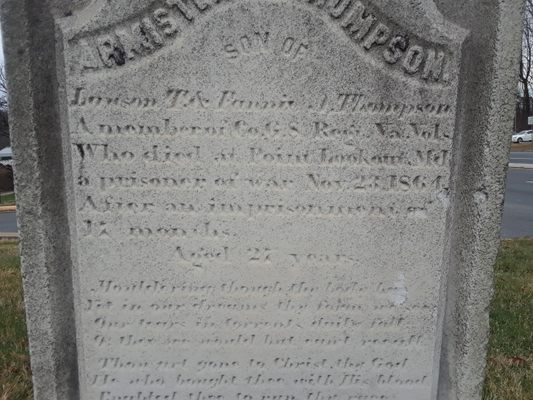 ARMISTEAD THOMPSON.
SON OF
Lawson T. & Fannie A. Thompson
A member of Co. G. 8. Regt. Va. Vols.
Who died at Point Lookout, Md.
a prisoner of war Nov. 23, 1864.
After an imprisonment of
17 months.
Aged 27 years.
Mouldering though the body be
Yet in our dreams thy form we see
Our tears in torrents daily fall
thee we would but can't recall
Thou art gone to Christ, thy God
He who bought thee with His blood
Enabled thee to run the race